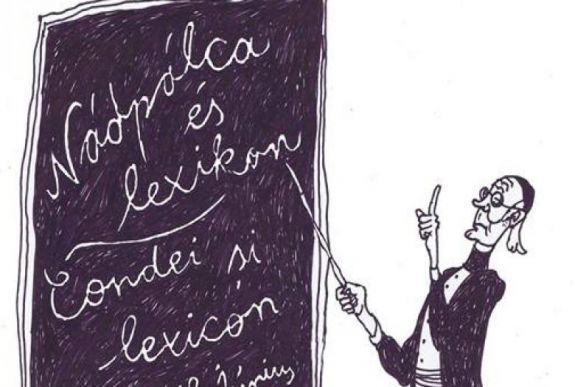 Nádpálca
és
lexikon
Condei si
lexicón